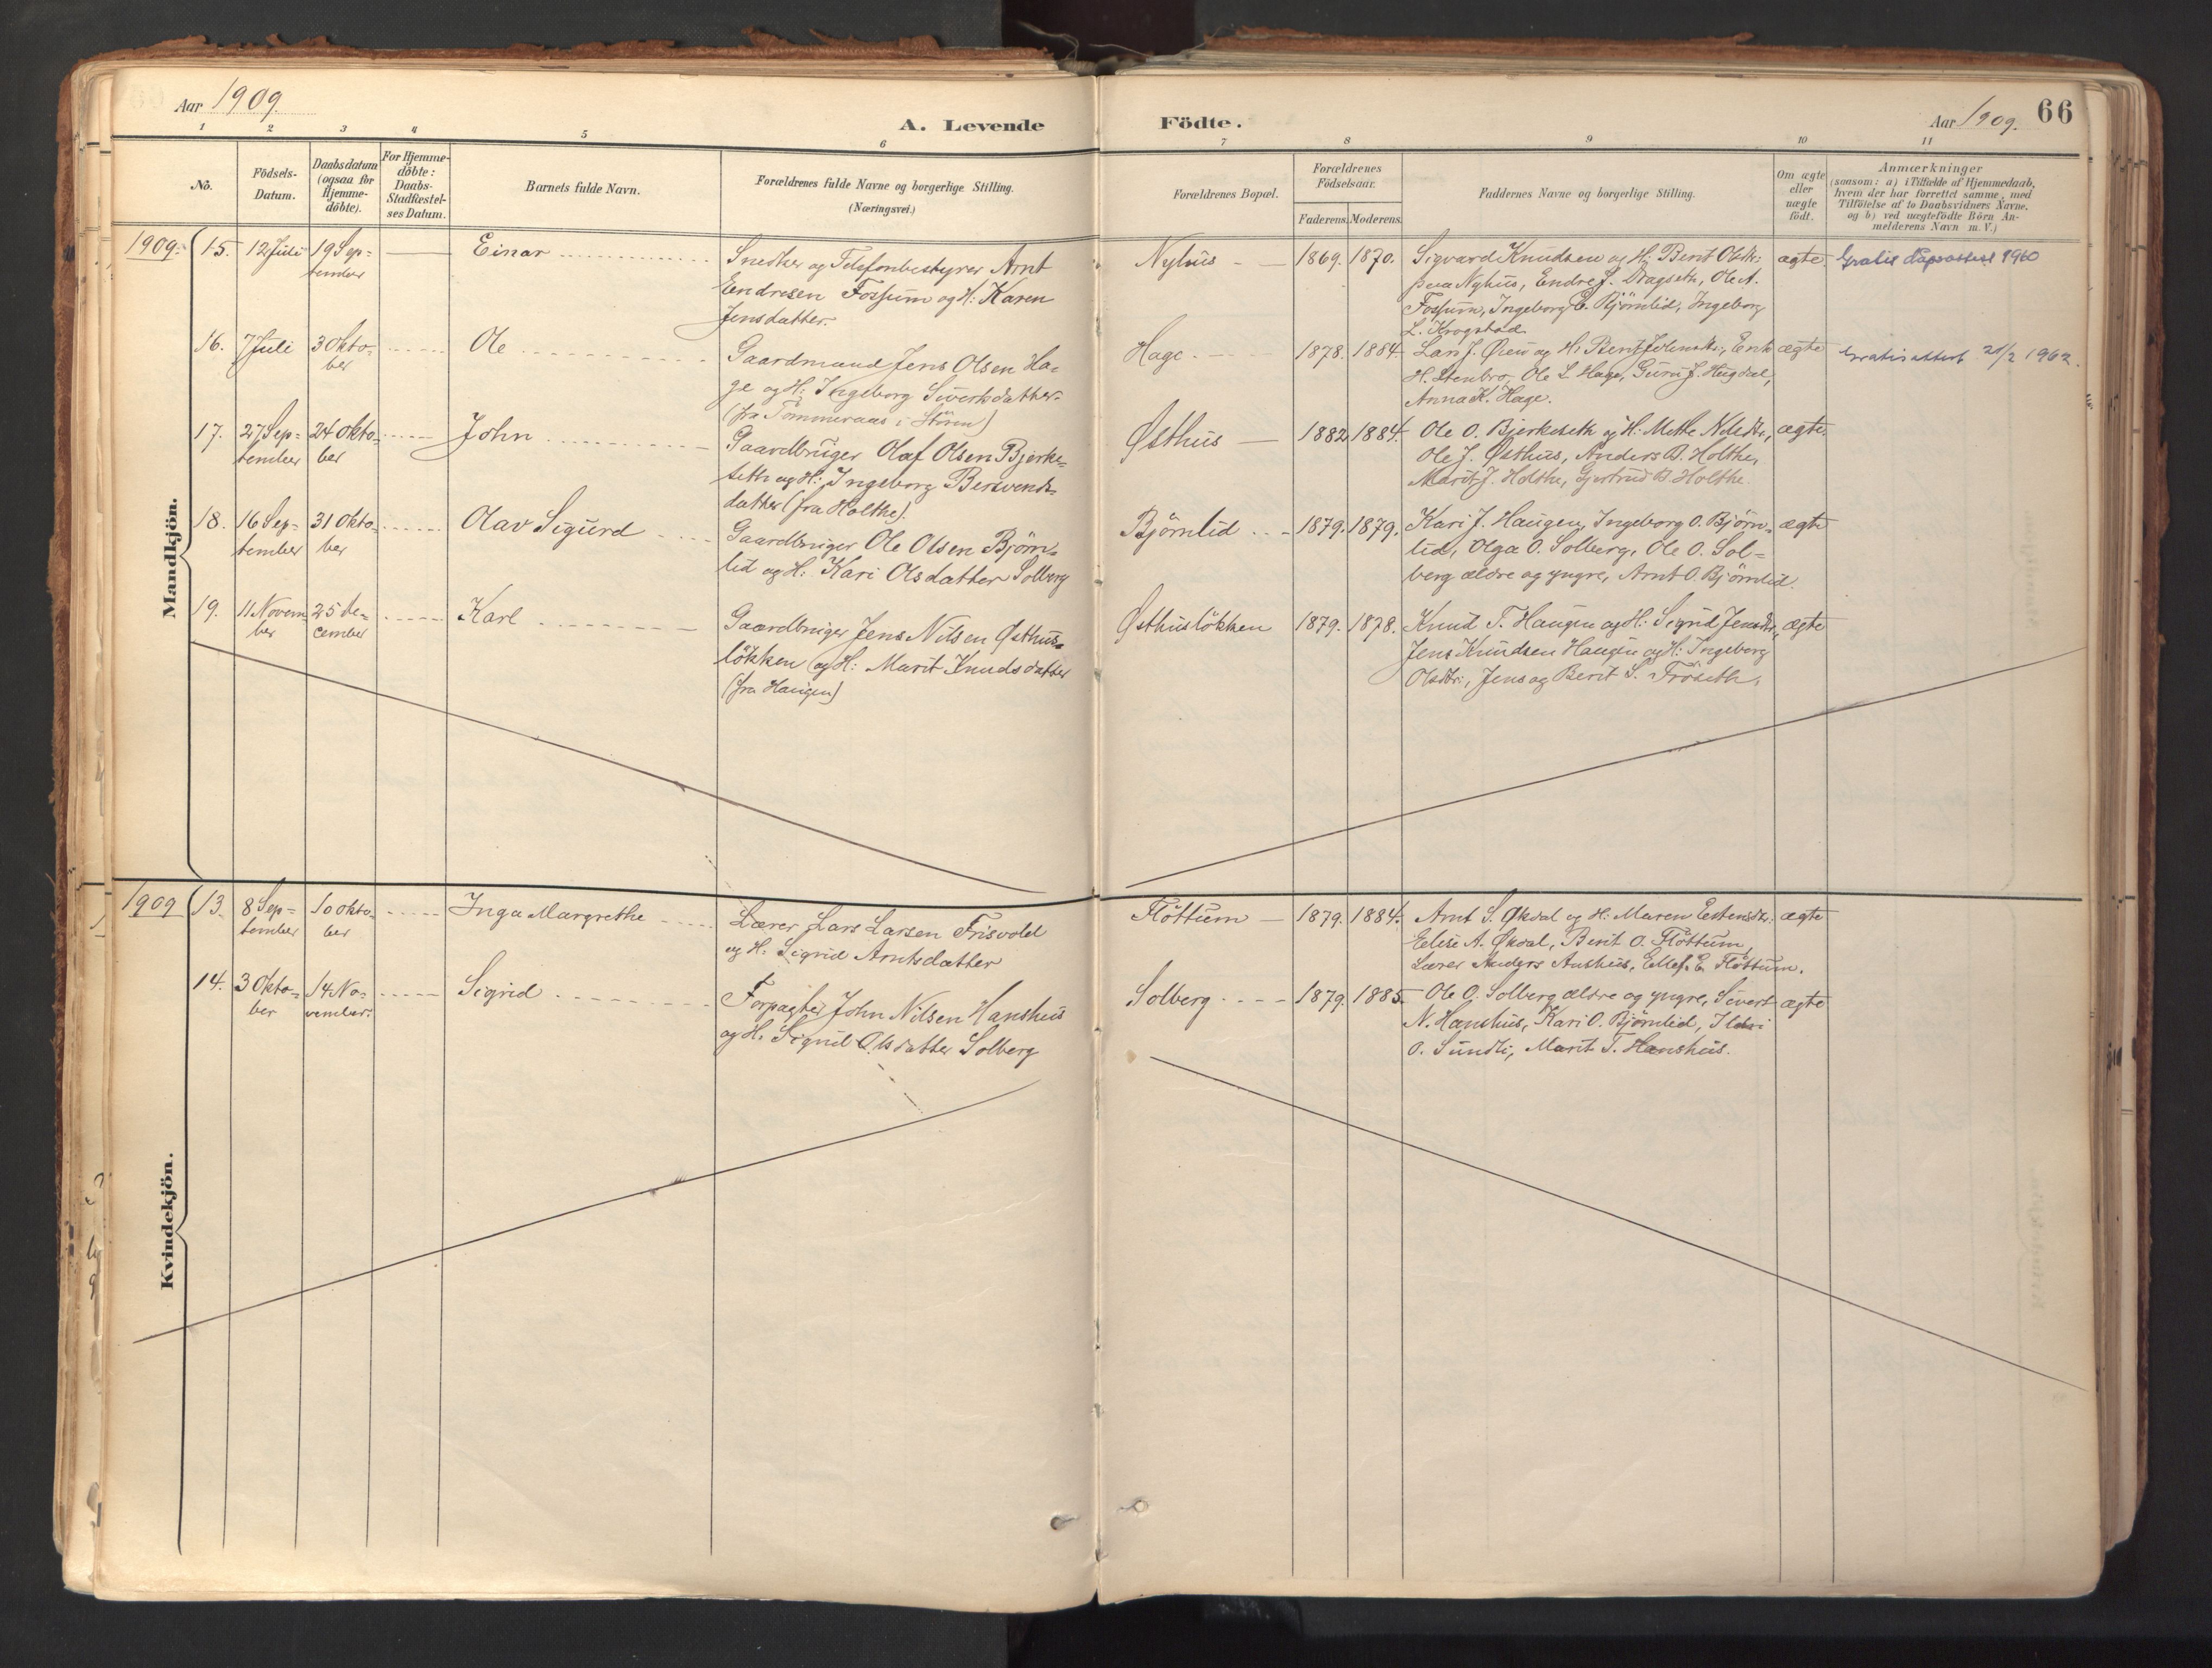 Aar 1909.
A. Levende
Födte.
Aar 1909.
66
1
2
3
4
5
6
7
8
9
10
11
No.
Födsels-
Datum.
Daabsdatum
(ogsaa for
Hjemme-
döbte).
For Hjemme-
döbte:
Daabs-
Stadfæstel-
ses Datum.
Barnets fulde Navn.
Forældrenes fulde Navne og borgerlige Stilling.
(Næringsvei.)
Forældrenes Bopæl.
Forældrenes
Födselsaar.
Faderens.
Moderens.
Faddernes Navne og borgerlige Stilling.
Om ægte
eller
uægte
födt.
Anmærkninger
(saasom: a) i Tilfælde af Hjemmedaab,
hvem der har forrettet samme, med
Tilföielse af to Daabsvidners Navne.
og b) ved uægtefödte Börn An-
melderens Navn m. V.)
Mandkjön.
1909.
15.
12 Juli
19 Sep-
tember
Einar
Snedker og Telefonbestyrer Arnt
Endresen Fossum og H: Karen
Jensdatter.
Nyhus
1869.
1870.
Sigvard Knudsen og H: Berit Olsdtr:
Nyhus, Endre J. Dragseth, Ole A.
Fossum, Ingeborg E. Björnlid, Ingeborg
L. Krogstad.
ægte.
Gratis dåpsattest 1960
16.
7 Juli
3 Okto-
ber
Ole
Gaardmand Jens Olsen Ha-
ge og H: Ingeborg Sivertsdatter.
(fra Tömmeraas i Stören)
Hage.
1878.
1884.
Lars J. Øien og H: Berit Johnsdtr:, Erik
H. Stenbro, Ole L. Hage, Guru J. Hugdal,
Anna K. Hage.
ægte
Gratisattest 20/2 1962.
17.
27 Sep-
tember
24 Okto-
ber
John
Gaardbruger Olaf Olsen Bjerke-
seth og H: Ingeborg Bersvends-
datter (fra Holthe).
Østhus
1882
1884.
Ole O. Bjerkeseth og H: Mette Nilsdtr,
Ole J. Østhus, Anders B. Holthe,
Marit J. Holthe, Gjertrud B. Holthe.
ægte.
18.
16 Sep-
tember
31 Okto-
ber
Olav Sigurd
Gaardbruger Ole Olsen Björn-
lid og H: Kari Olsdatter Solberg
Björnlid
1879.
1879.
Kari J. Haugen, Ingeborg O. Björn-
lid, Olga O. Solberg, Ole O. Sol-
berg ældre og yngre, Arnt O. Björnlid.
ægte
19.
11 Novem-
ber
25 De-
cember
Karl
Gaardbruger Jens Nilsen Østhus-
lökken og H: Marit Knudsdatter
(fra Haugen)
Østhuslökken
1879.
1878.
Knud T. Haugen og H: Sigrid Jensdtr,
Jens Knudsen Haugen og H: Ingeborg
Olsdtr:, Jens og Berit S. Fröseth.
ægte
Kvindekjön.
1909
13.
8 Sep-
tember
10 Okto-
ber
Inga Margrethe
Lærer Lars Larsen Frisvold
og H: Sigrid Arntsdatter
Flöttum
1879.
1884.
Arnt S. Økdal og H: Maren Estensdtr:
Elise A. Økdal, Berit O. Flöttum,
Lærer Anders Aushus, Ellef E. Flöttum.
ægte
14.
3 Okto-
ber
14 No-
vember.
Sigrid
Forpagter John Nilsen Hanshus
og H: Sigrid Olsdatter Solberg
Solberg
1879.
1885.
Ole O. Solberg ældre og yngre, Sivert
N. Hanshus, Kari O. Björnlid, Ildri
O. Sundli, Marit T. Hanshus.
ægte